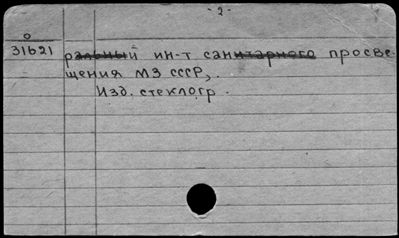 - 2 -
0
31621 ральный ин-т санитарного просве-
щения МЗ СССР,.
Изд. стеклогр.